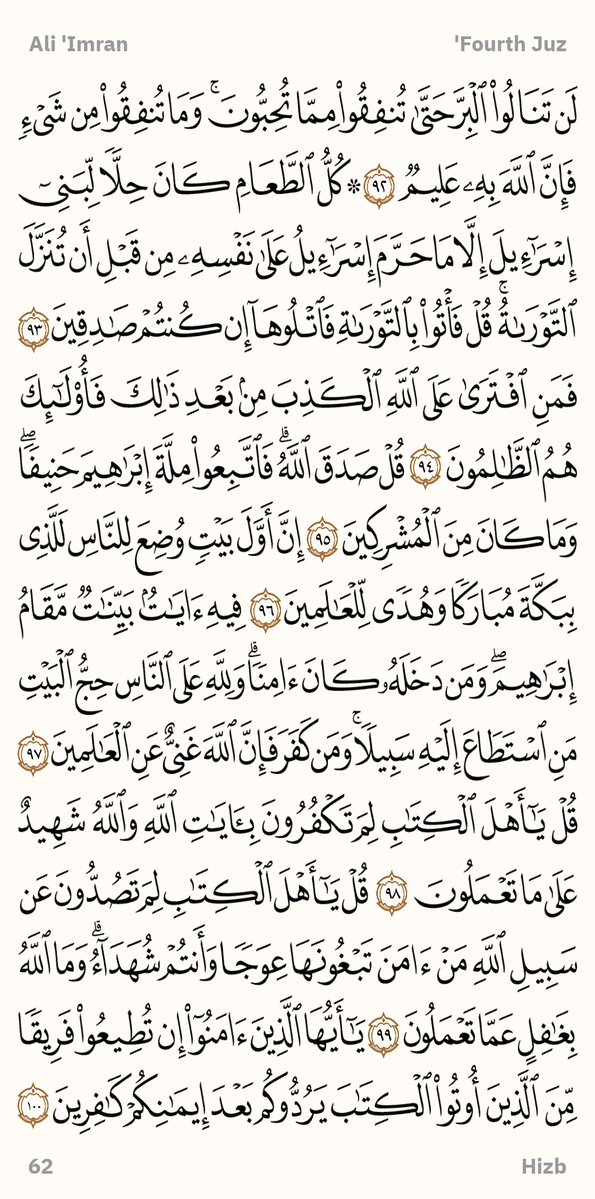 Ali 'Imran
'Fourth Juz
لَن تَنَالُوا۟ ٱلْبِرَّ حَتَّىٰ تُنفِقُوا۟ مِمَّا تُحِبُّونَ ۚ وَمَا تُنفِقُوا۟ مِن شَىْءٍ
فَإِنَّ ٱللَّهَ بِهِۦ عَلِيمٌ ٩٢ ۞ كُلُّ ٱلطَّعَامِ كَانَ حِلًّا لِّبَنِىٓ
إِسْرَٰٓءِيلَ إِلَّا مَا حَرَّمَ إِسْرَٰٓءِيلُ عَلَىٰ نَفْسِهِۦ مِن قَبْلِ أَن تُنَزَّلَ
ٱلتَّوْرَىٰةُ ۗ قُلْ فَأْتُوا۟ بِٱلتَّوْرَىٰةِ فَٱتْلُوهَآ إِن كُنتُمْ صَـٰدِقِينَ ٩٣
فَمَنِ ٱفْتَرَىٰ عَلَى ٱللَّهِ ٱلْكَذِبَ مِنۢ بَعْدِ ذَٰلِكَ فَأُو۟لَـٰٓئِكَ
هُمُ ٱلظَّـٰلِمُونَ ٩٤ قُلْ صَدَقَ ٱللَّهُ ۗ فَٱتَّبِعُوا۟ مِلَّةَ إِبْرَٰهِيمَ حَنِيفًا ۖ
وَمَا كَانَ مِنَ ٱلْمُشْرِكِينَ ٩٥ إِنَّ أَوَّلَ بَيْتٍ وُضِعَ لِلنَّاسِ لَلَّذِى
بِبَكَّةَ مُبَارَكًا وَهُدًى لِّلْعَـٰلَمِينَ ٩٦ فِيهِ ءَايَـٰتٌۢ بَيِّنَـٰتٌ مَّقَامُ
إِبْرَٰهِيمَ ۖ وَمَن دَخَلَهُۥ كَانَ ءَامِنًا ۗ وَلِلَّهِ عَلَى ٱلنَّاسِ حِجُّ ٱلْبَيْتِ
مَنِ ٱسْتَطَاعَ إِلَيْهِ سَبِيلًا ۚ وَمَن كَفَرَ فَإِنَّ ٱللَّهَ غَنِىٌّ عَنِ ٱلْعَـٰلَمِينَ ٩٧
قُلْ يَـٰٓأَهْلَ ٱلْكِتَـٰبِ لِمَ تَكْفُرُونَ بِـَٔايَـٰتِ ٱللَّهِ وَٱللَّهُ شَهِيدٌ
عَلَىٰ مَا تَعْمَلُونَ ٩٨ قُلْ يَـٰٓأَهْلَ ٱلْكِتَـٰبِ لِمَ تَصُدُّونَ عَن
سَبِيلِ ٱللَّهِ مَنْ ءَامَنَ تَبْغُونَهَا عِوَجًا وَأَنتُمْ شُهَدَآءُ ۗ وَمَا ٱللَّهُ
بِغَـٰفِلٍ عَمَّا تَعْمَلُونَ ٩٩ يَـٰٓأَيُّهَا ٱلَّذِينَ ءَامَنُوٓا۟ إِن تُطِيعُوا۟ فَرِيقًا
مِّنَ ٱلَّذِينَ أُوتُوا۟ ٱلْكِتَـٰبَ يَرُدُّوكُم بَعْدَ إِيمَـٰنِكُمْ كَـٰفِرِينَ ١٠٠
62
Hizb